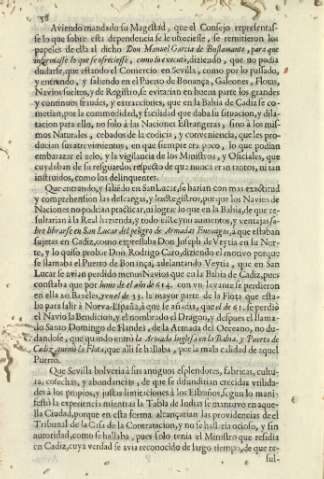 Aviendo mandado su Magestad, que el Consejo representas-
se lo que sobre esta dependencia se le ofreciesse, se remitieron los
papeles de ella al dicho Don Manuel Garcia de Bustamante, para que
informasse lo que se ofreciesse, como lo executò, diziendo, que no podia
dudarse, que estando el Comercio en Sevilla, como por lo passado,
y entrando, y saliendo en el Puerto de Bonança, Galeones, Flotas,
Navios sueltos, y de Registro, se evitarian en buena parte los grandes
y continuos fraudes, y extracciones, que en la Bahia de Cadiz se co-
metian, por la commodidad, y facilidad que daba su situacion, y dila-
tacion para ello, no solo à las Naciones Estrangeras, sino à los mis-
mos Naturales, cebados de la codicia, y conveniencia, que les pro-
ducian sus atrevimientos, en que siempre era poco, lo que podian
embarazar el zelo, y la vigilancia de los Ministros, y Oficiales, que
cuydaban de su resguardo, respecto de que nunca eran tantos, ni tan
instruidos, como los delinquentes.
Que entrando, y saliendo en San Lucar, se harian con mas exactitud
y comprehension las descargas, y los Registros, por que los Navios de
Naciones no podrian practicar, ni lograr lo que en la Bahia, de que re-
sultaria à la Real hazienda, y todo esse aumentos, y ventajas
sobre librarse en San Lucar del peligro de Armadas Enemigas, à que estaban
sujetas en Cadiz, como expressaba Don Joseph de Veytia en la Nor-
te, y lo quiso probar Don Rodrigo Caro, diziendo el motivo porque
se llamaba el Puerto de Bonança, adelantando Veytia, que en San
Lucar se avian perdido menos Navios que en la Bahia de Cadiz, pues
constaba que por Junio de el año de 614. con un levante se perdieron
en ella 20. Baxeles, y en el de 33. la mayor parte de la Flota que esta-
ba para salir à Nueva-España, à que se añadia, que el de 61. se perdiò
el Navio la Bendicion, y el nombrado el Dragon, y despues el llama-
do Santo Domingo de Flandes, de la Armada del Oceano, no du-
dandose, que quando entrò la Armada Inglesa en la Bahia, y Puerto de
Cadiz, quemò la Flota, que alli se hallaba, por la mala calidad de aquel
Puerto.
Que Sevilla bolveria à sus antiguos esplendores, fabricas, cultu-
ra, cosechas, y abundancias, de que se difundirian crecidas utilida-
des à los propios, y justas limitaciones à los Estraños, segun lo mani-
festò la experiencia mientras la Tabla de Indias se mantuvo en aque-
lla Ciudad, porque en esta forma alcançarian las providencias de el
Tribunal de la Casa de la Contratacion, y no se hallaria ocioso, y sin
autoridad, como se hallaba, pues solo tenia el Ministro que residia
en Cadiz, cuya verdad se avia reconocido de largo tiempo, de que re-
sul-